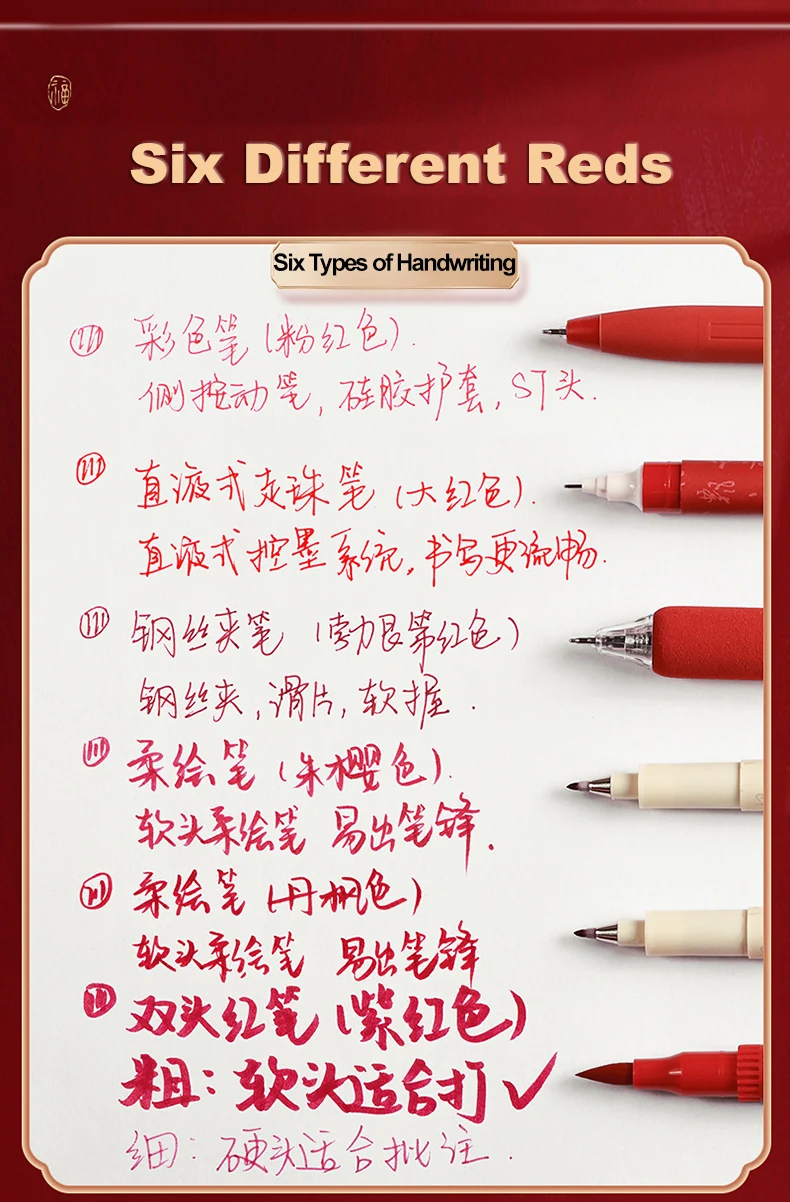 福
Six Different Reds
Six Types of Handwriting
彩色笔(粉红色).
侧按动笔,硅胶护套,ST头.
直液式走珠笔(大红色).
直液式控墨系统,书写更流畅.
钢丝夹笔(勃艮第红色)
钢丝夹,滑片,软握.
柔绘笔(朱樱色).
软头柔绘笔 易出笔锋.
柔绘笔(丹枫色)
软头柔绘笔 易出笔锋
双头红笔(紫红色)
粗:软头适合打✓
细:硬头适合批注.